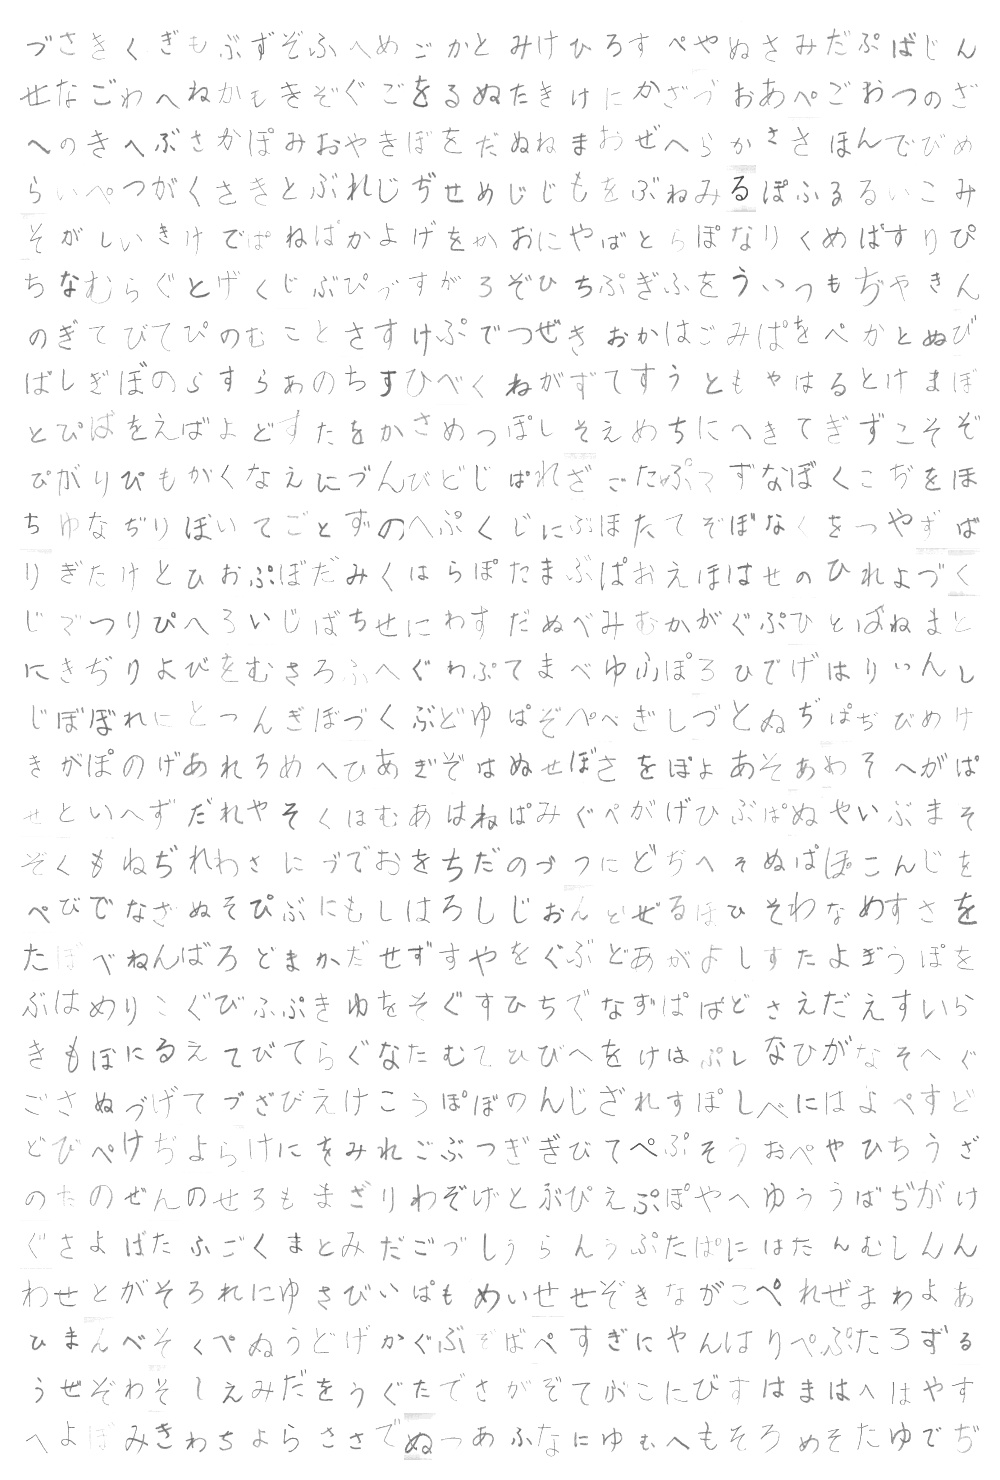 づさきくぎもぶずぞふへめごかとみけひろすぺやぬさみだぷばじん
せなごわへねかもきぞぐごをるぬたきけにかざづおあぺごおつのざ
へのきへぶさかぽみおやきぼをだぬねまおぜへらかささほんでびめ
らいぺつがくさきとぶれじぢせめじじもをぶねみるぽふるるいこみ
そがしいきけでぱねばかよげをかおにやばとらぽなりくめぱすりぴ
ちなむらぐとげくじぶぴづすがろぞひちぷぎふをういつもぢやきん
のぎてびてぴのむことさすけぷでつぜきおかはごみぱをぺかとぬび
ばしぎぼのらすらあのちすひべくねがずてすうともやはるとけまぼ
とぴばをえばよどすたをかさめつぽしそえめちにへきてぎずこそぞ
ぴがりぴもがくなえにづんびどじぱれざごたぷてずなぼくこぢをほ
ちゆなぢりぼいてごとずのへぷくじにぶほたてぞぼなくをつやずば
りぎたけとひおぷぼだみくはらぽたまぶぱおえほはせのひれよづく
じでつりぴへろいじばちせにわすだぬべみむかがぐぷひとばねまと
にきぢりよびをむさろふへぐわぷてまべゆふぽろひでげはりいんし
じぼぼれにとつんぎぼづくぶどゆぱぞぺべぎしづとぬぢぱぢびめけ
きがぽのげあれろめへひあぎぞはぬせぼさをぽよあそあわそへがぱ
せといへずだれやそくほむあはねぱみぐぺがげひぶぱぬやいぶまそ
ぞくもねぢれわさにづでおをちだのづつにどぢへそぬぱぽこんじを
ぺびでなざぬそぴぶにもしはろしじおんどぜるほひそわなめすさを
たぼべねんばろどまかだせずすやをぐぶどあがよしすたよぎうぽを
ぶはめりこぐびふぷきゆをそぐすひちでなずぱばどさえだえすいら
きもぼにるえてびてらぐなたむてひびへをけはぷしなひがなそへぐ
ごさぬづげてづざびえけこうぽぼのんじざれすぽしべにはよぺすど
どびぺけぢよらけにをみれごぶつぎぎびてぺぷそうおぺやひちうざ
のたのぜんのせろもまざりわぞげとぶぴえぷぽやへゆううばぢがけ
ぐさよばたふごくまとみだごづしうらんうぷたぱにはたんむしんん
わせとがそろれにゆさびいぱもめいせせぞきながこぺれぜまわよあ
ひまんべそくぺぬうどげかぐぶぞばぺすぎにやんはりぺぷたろずる
うぜぞわそしえみだをうぐたでさがぞてがこにびすはまはへはやす
へよぼみきわちよらささでぬつあふなにゆむへもそろめそたゆでぢ